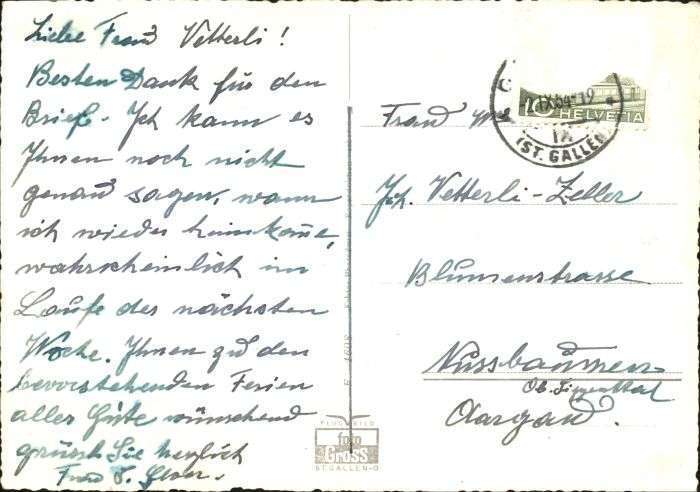 Liebe Frau Vetterli!
Besten Dank für den
Brief. Ich kann es
Ihnen noch nicht
genau sagen, wann
ich wieder heimkom̅e,
wahrscheinlich im
Laufe des nächsten
Woche. Ihnen zu den
bevorstehenden Ferien
alles Gute wünschend
grüsst Sie herzlich
Frau
10 HELVETIA
IX.54-19
IX
(ST. GALLEN)
Frau
Joh. Vetterli-Zeller
Blumenstrasse
Nussbaumen
Ob. Siggenthal
Aargau.
FLUGBILD
foto
Gross
ST. GALLEN-O